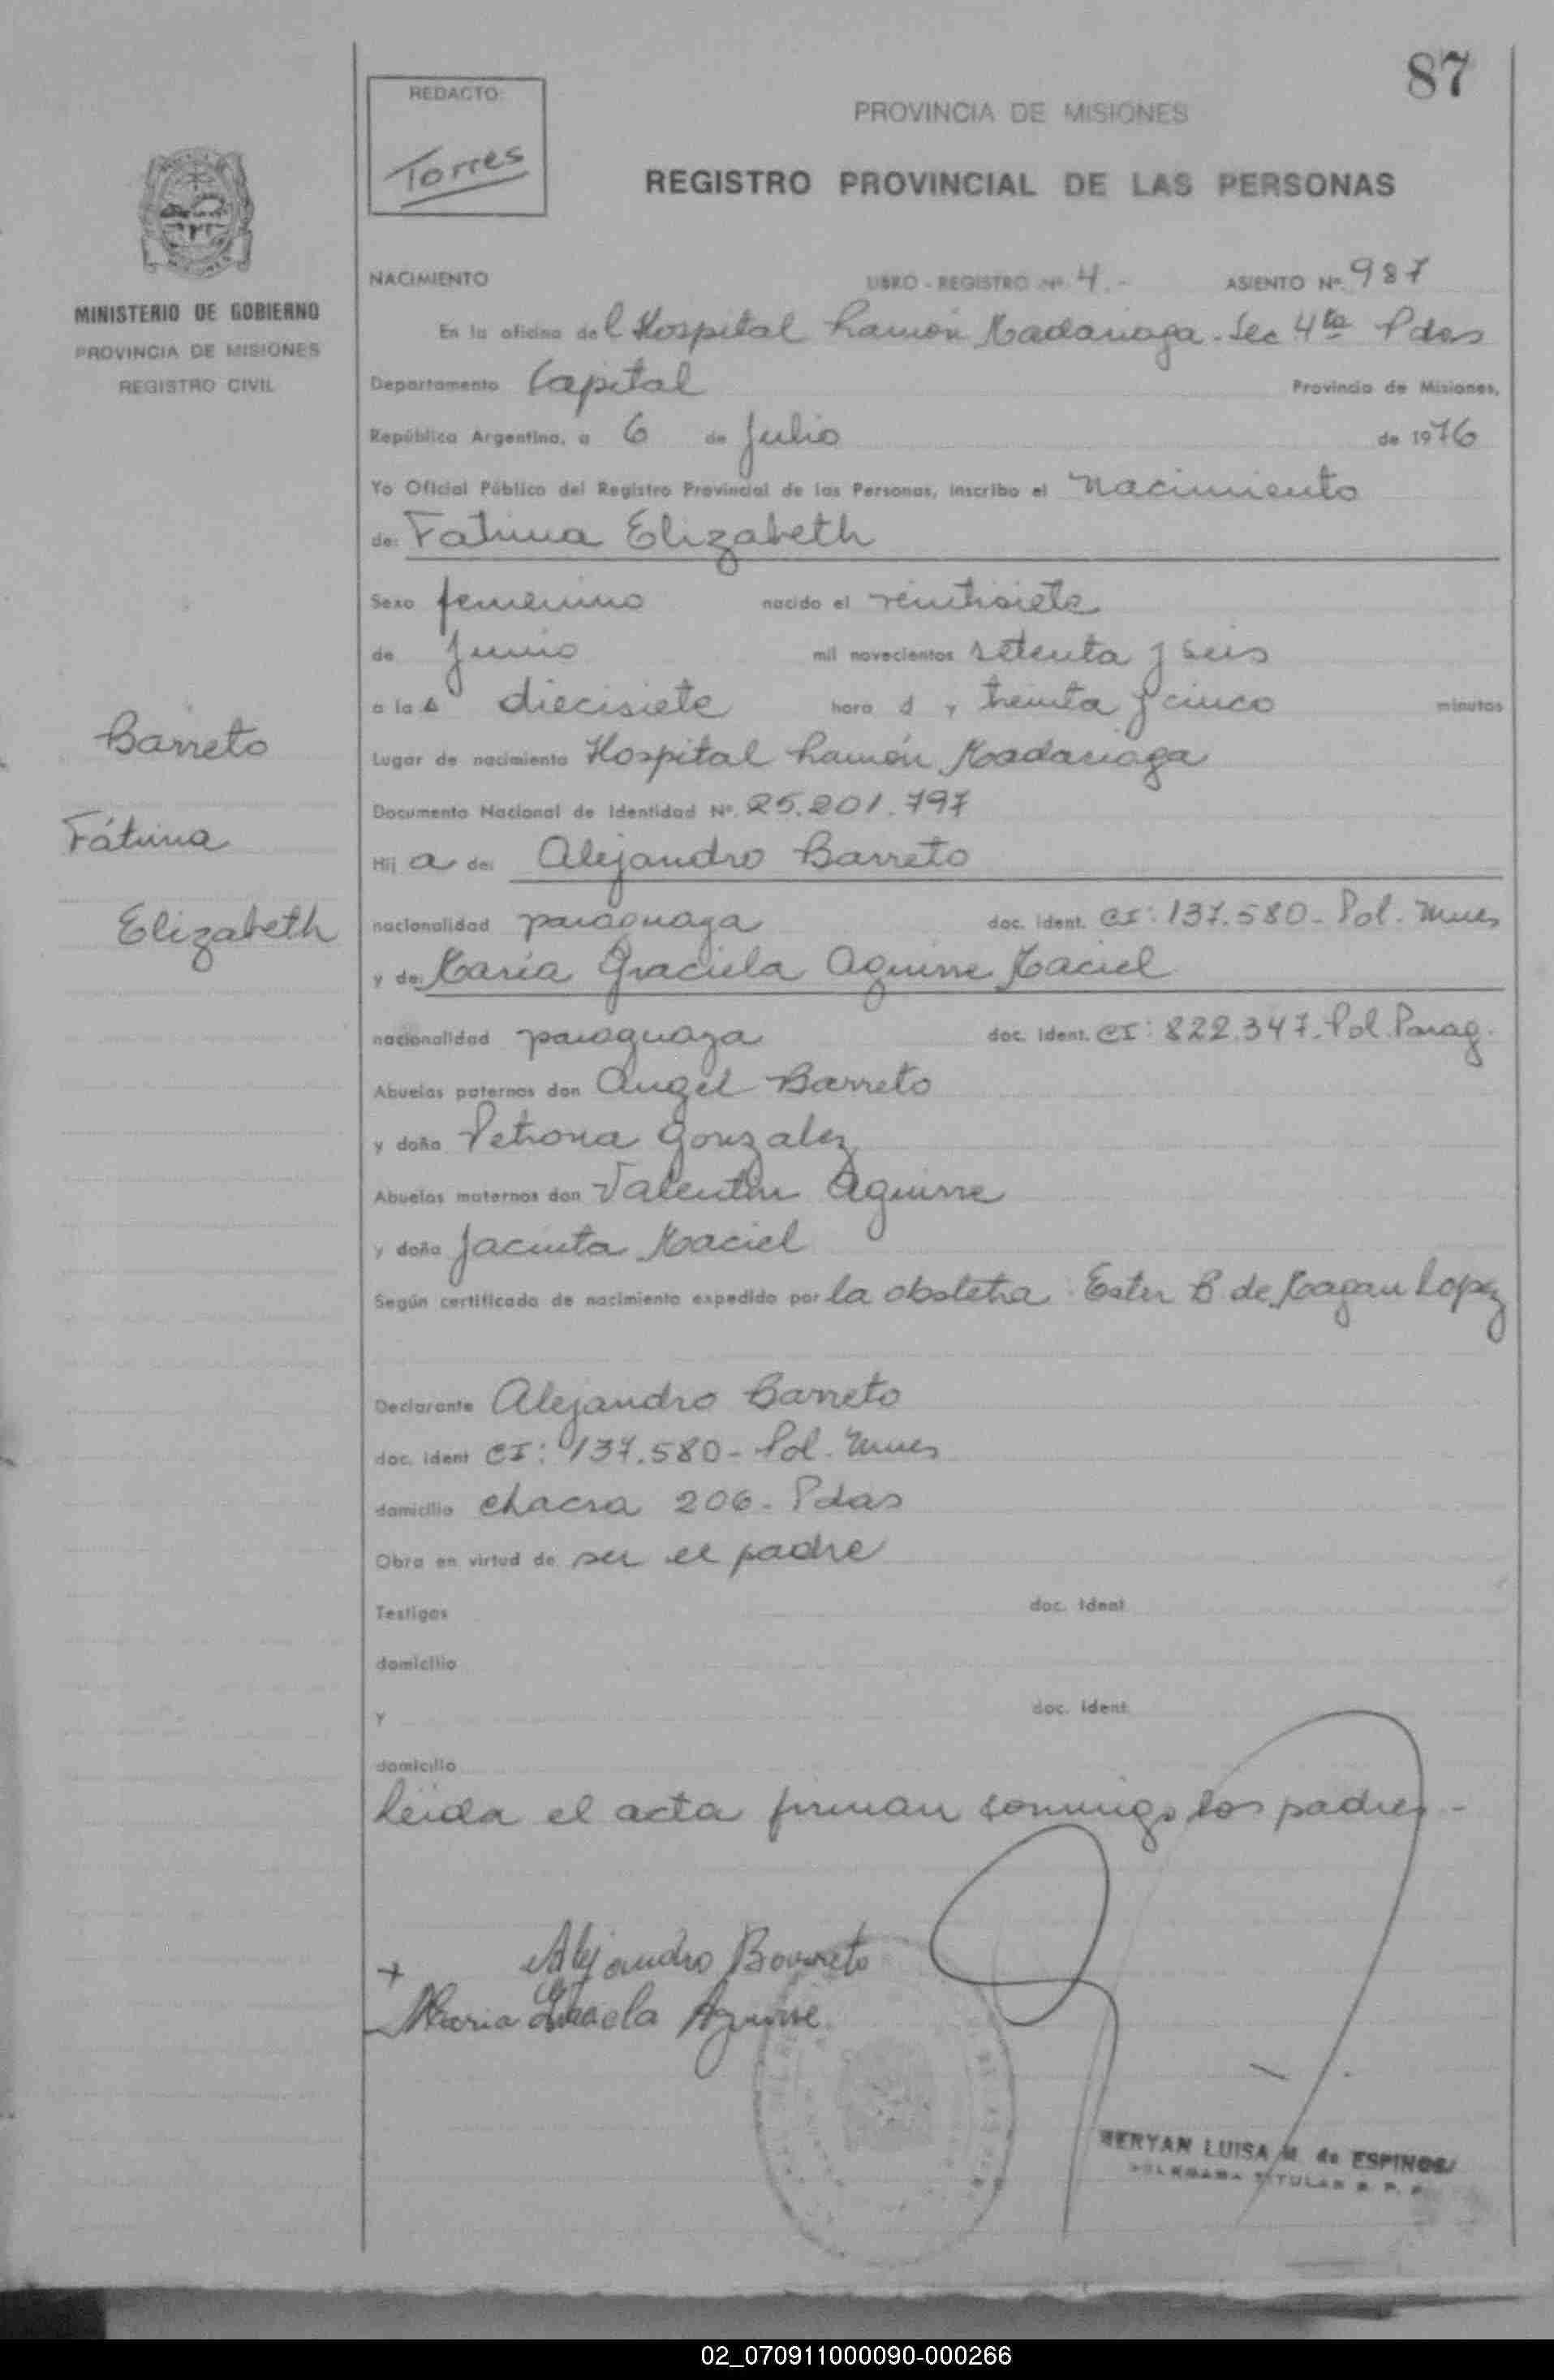 87
REDACTO:
Torres
PROVINCIA DE MISIONES
REGISTRO PROVINCIAL DE LAS PERSONAS
MINISTERIO DE GOBIERNO
PROVINCIA DE MISIONES
REGISTRO CIVIL
NACIMIENTO LIBRO - REGISTRO Nº 4.- ASIENTO Nº 987
En la oficina del Hospital Ramón Madariaga - Sec 4ta Pdas
Departamento Capital Provincia de Misiones,
República Argentina, a 6 de Julio de 1976
Yo Oficial Público del Registro Provincial de las Personas, inscribo el Nacimiento
de: Fatima Elizabeth
Sexo femenino nacido el veintisiete
de Junio mil novecientos setenta y seis
a las diecisiete hora s y treinta y cinco minutos
Lugar de nacimiento Hospital Ramón Madariaga
Documento Nacional de Identidad Nº. 25.201.797
Hij a de: Alejandro Barreto
nacionalidad paraguaya doc. ident. CI: 137.580 - Pol. Mnes
y de: María Graciela Aguirre Maciel
nacionalidad paraguaya doc. ident. CI: 822.347 - Pol. Parag.
Abuelos paternos don Angel Barreto
y doña Petrona Gonzalez
Abuelos maternos don Valentin Aguirre
y doña Jacinta Maciel
Según certificado de nacimiento expedido por la obstetra Ester B de Lopez
Declarante Alejandro Barreto
doc. ident CI: 137.580 - Pol. Mnes
domicilio chacra 206 - Pdas
Obra en virtud de ser el padre
Testigos doc. ident
domicilio
Y doc. ident.
domicilio
Leida el acta firman conmigo los padres -
Barreto
Fátima
Elizabeth
+ Alejandro Barreto
Maria Graciela Aguirre
LUISA M. de ESPINOSA
TITULAR R. P. P.
02_070911000090-000266